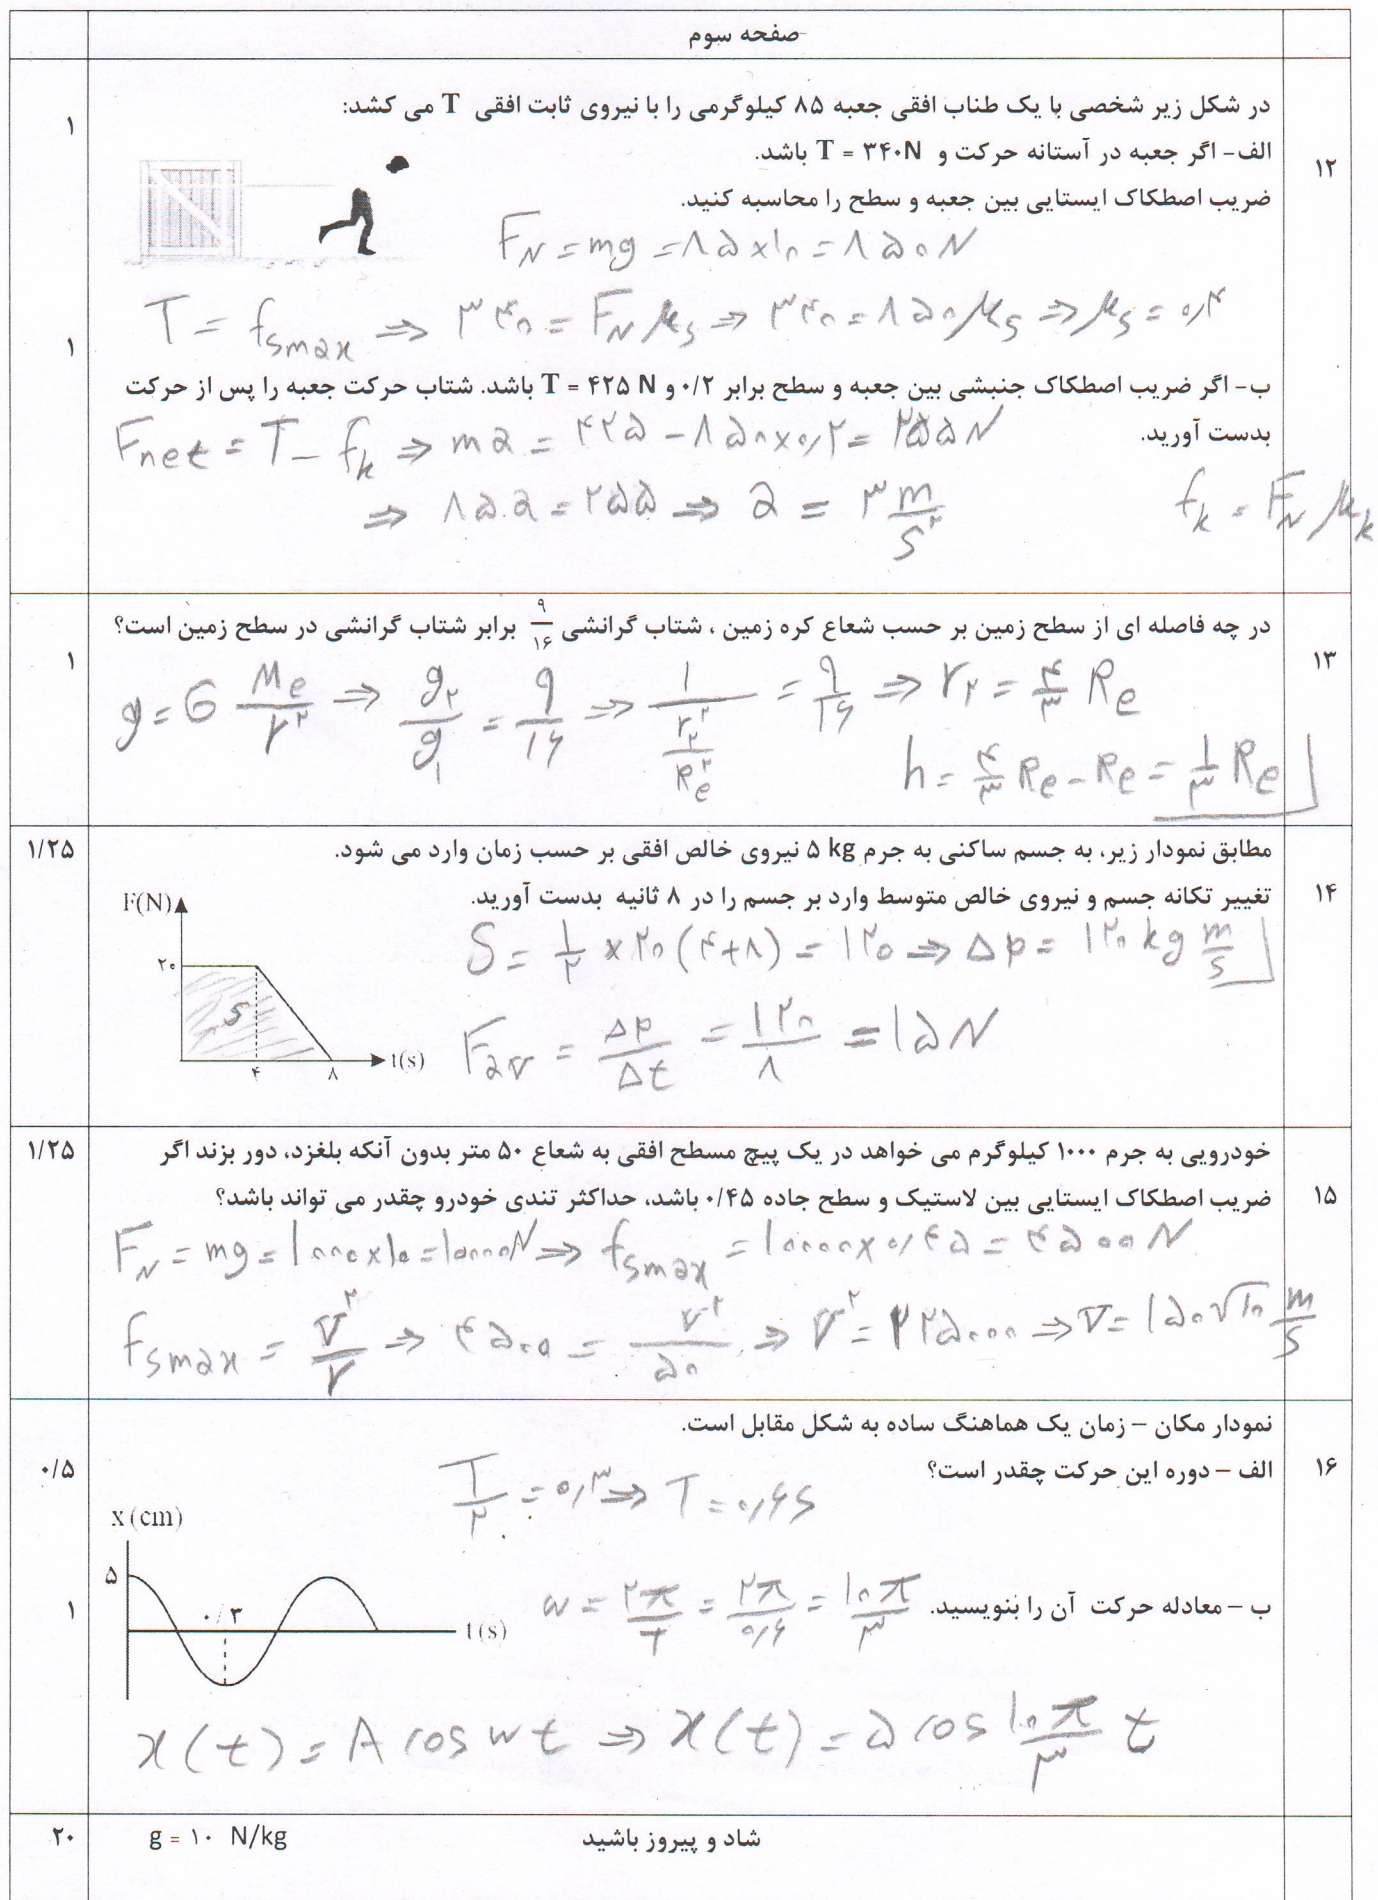 صفحه سوم
۱
۱۲
در شکل زیر شخصی با یک طناب افقی جعبه ۸۵ کیلوگرمی را با نیروی ثابت افقی T می کشد:
الف- اگر جعبه در آستانه حرکت و T = ۳۴۰N باشد.
ضریب اصطکاک ایستایی بین جعبه و سطح را محاسبه کنید.
F_N = mg = ۸۵ × ۱۰ = ۸۵۰ N
T = f_smax ⇒ ۳۴۰ = F_N μ_s ⇒ ۳۴۰ = ۸۵۰ μ_s ⇒ μ_s = ۰٫۴
۱
ب- اگر ضریب اصطکاک جنبشی بین جعبه و سطح برابر ۰/۲ و T = ۴۲۵ N باشد. شتاب حرکت جعبه را پس از حرکت
بدست آورید.
F_net = T - f_k ⇒ ma = ۴۲۵ - ۸۵۰ × ۰٫۲ = ۲۵۵ N
⇒ ۸۵.a = ۲۵۵ ⇒ a = ۳ m/s^۲
f_k = F_N μ_k
۱
۱۳
در چه فاصله ای از سطح زمین بر حسب شعاع کره زمین ، شتاب گرانشی ۹/۱۶ برابر شتاب گرانشی در سطح زمین است؟
g = G M_e/r^۲ ⇒ g_۲/g_۱ = ۹/۱۶ ⇒ ۱/(r_۲^۲/R_e^۲) = ۹/۱۶ ⇒ r_۲ = ۴/۳ R_e
h = ۴/۳ R_e - R_e = ۱/۳ R_e
۱/۲۵
۱۴
مطابق نمودار زیر، به جسم ساکنی به جرم ۵ kg نیروی خالص افقی بر حسب زمان وارد می شود.
تغییر تکانه جسم و نیروی خالص متوسط وارد بر جسم را در ۸ ثانیه بدست آورید.
F(N)
۲۰
S
۴
۸
t(s)
S = ۱/۲ × ۲۰ (۴+۸) = ۱۲۰ ⇒ Δp = ۱۲۰ kg m/s
F_av = Δp/Δt = ۱۲۰/۸ = ۱۵ N
۱/۲۵
۱۵
خودرویی به جرم ۱۰۰۰ کیلوگرم می خواهد در یک پیچ مسطح افقی به شعاع ۵۰ متر بدون آنکه بلغزد، دور بزند اگر
ضریب اصطکاک ایستایی بین لاستیک و سطح جاده ۰/۴۵ باشد، حداکثر تندی خودرو چقدر می تواند باشد؟
F_N = mg = ۱۰۰۰ × ۱۰ = ۱۰۰۰۰ N ⇒ f_smax = ۱۰۰۰۰ × ۰٫۴۵ = ۴۵۰۰ N
f_smax = v^۲/r ⇒ ۴۵۰۰ = v^۲/۵۰ ⇒ v^۲ = ۲۲۵۰۰۰ ⇒ v = ۱۵۰√۱۰ m/s
۱۶
نمودار مکان – زمان یک هماهنگ ساده به شکل مقابل است.
۰/۵
الف – دوره این حرکت چقدر است؟
T/۲ = ۰٫۳ ⇒ T = ۰٫۶ s
x(cm)
۵
۰/۳
t(s)
۱
ب – معادله حرکت آن را بنویسید.
ω = ۲π/T = ۲π/۰٫۶ = ۱۰π/۳
x(t) = A cos ωt ⇒ x(t) = ۵ cos ۱۰π/۳ t
۲۰
شاد و پیروز باشید
g = ۱۰ N/kg